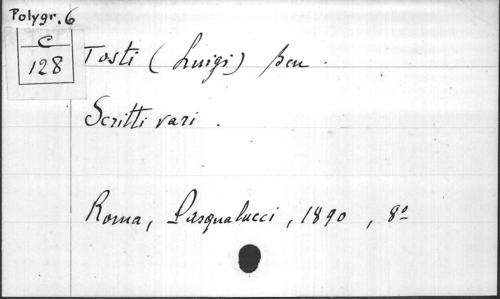 Polygr. 6
C
128
Tosti (Luigi) sen.
Scritti vari.
Roma, Pasqualucci, 1890, 8º